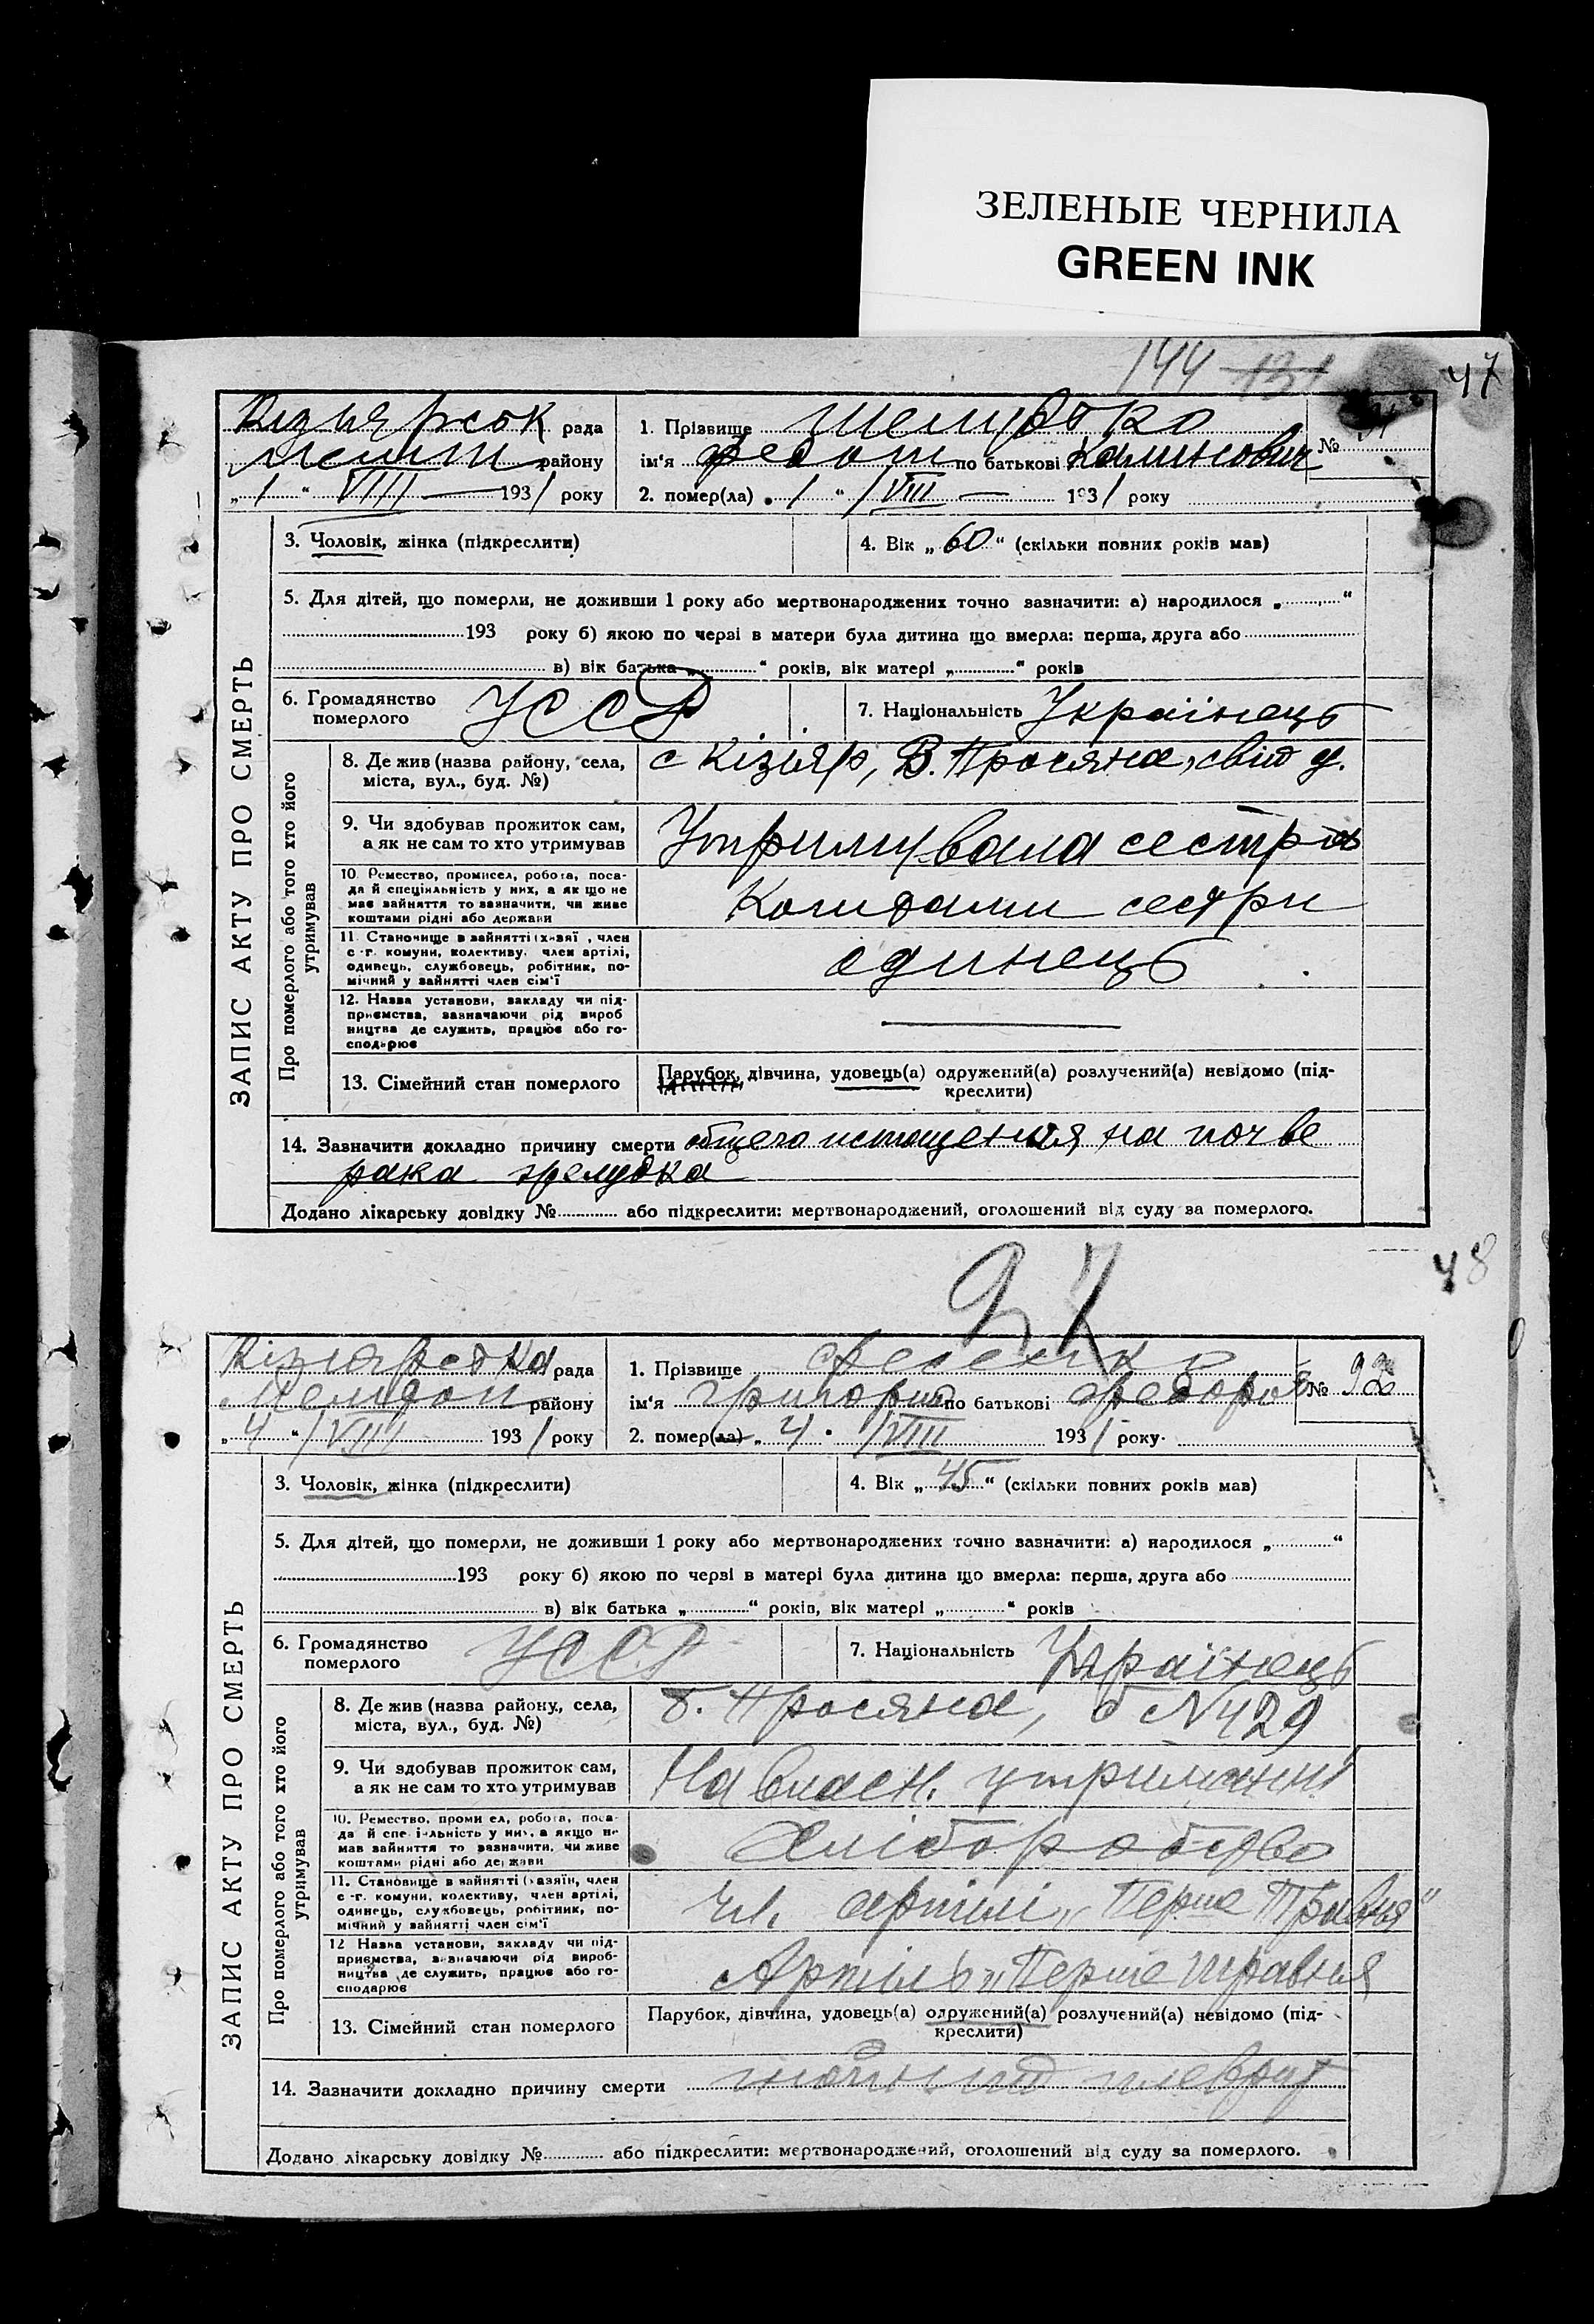 ЗЕЛЕНЫЕ ЧЕРНИЛА
GREEN INK
144 131
47
Кізіярськ рада
Меліт району
„1“ VIII 1931 року
1. Прізвище Шелудько
ім'я Федот по батькові
№
2. помер(ла) „1“ /VIII 1931 року
ЗАПИС АКТУ ПРО СМЕРТЬ
3. Чоловік, жінка (підкреслити)
4. Вік „60“ (скільки повних років мав)
5. Для дітей, що померли, не доживши 1 року або мертвонароджених точно зазначити: а) народилося „ “
193 року б) якою по черзі в матери була дитина що вмерла: перша, друга або
в) вік батька „ “ років, вік матері „ “ років
6. Громадянство
померлого
УССР
7. Національність Українець
Про померлого або того хто його
утримував
8. Де жив (назва району, села,
міста, вул., буд. №)
с Кізіяр, В. Просяна, свій д.
9. Чи здобував прожиток сам,
а як не сам то хто утримував
Утримувала сестра
10. Ремество, промисел, робота, поса-
да й спеціяльність у них, а як що не
має зайняття то зазначити, чи живе
коштами рідні або держави
Коштами сестри
11. Становище в зайнятті (хазяї , член
с.-г. комуни, колективу, член артілі,
одинець, службовець, робітник, по-
мічний у зайнятті член сім'ї
одинець
12. Назва установи, закладу чи під-
приємства, зазначаючи рід вироб
ництва де служить, працює або го-
сподарює
13. Сімейний стан померлого
Парубок, дівчина, удовець(а) одружений(а) розлучений(а) невідомо (під-
креслити)
14. Зазначити докладно причину смерти общего истощения на почве
рака желудка
Додано лікарську довідку № або підкреслити: мертвонароджений, оголошений від суду за померлого.
97
48
Кізіярська рада
Мелітоп району
„4“ /VIII 1931 року
1. Прізвище Фесенко
ім'я Григорій по батькові Федоров
№ 92
2. помер(ла) „4“ /VIII 1931 року
ЗАПИС АКТУ ПРО СМЕРТЬ
3. Чоловік, жінка (підкреслити)
4. Вік „45“ (скільки повних років мав)
5. Для дітей, що померли, не доживши 1 року або мертвонароджених точно зазначити: а) народилося „ “
193 року б) якою по черзі в матері була дитина що вмерла: перша, друга або
в) вік батька „ “ років, вік матері „ “ років
6. Громадянство
померлого
УССР
7. Національність Українець
Про померлого або того хто його
утримував
8. Де жив (назва району, села,
міста, вул., буд. №)
В. Просяна, б №429
9. Чи здобував прожиток сам,
а як не сам то хто утримував
На власн. утриманні
10. Ремество, проми ел, робота, поса-
да й спеціяльність у них, а якщо не
мав зайняття то зазначити, чи живе
коштами рідні або держави
Хліборобство
11. Становище в зайнятті (хазяїн, член
с-г. комуни, колективу, член артілі,
одинець, службовець, робітник, по-
мічний у зайнятті член сім'ї
Чл. артілі „Перше Травня“
12 Назва установи, закладу чи під-
приємства, зазначаючи рід вироб-
ництва де служить, працює або го-
сподарює
Артіль „Перше травня
13. Сімейний стан померлого
Парубок, дівчина, удовець(а) одружений(а) розлучений(а) невідомо (під-
креслити)
14. Зазначити докладно причину смерти гнойний плеврит
Додано лікарську довідку № або підкреслити: мертвонароджений, оголошений від суду за померлого.